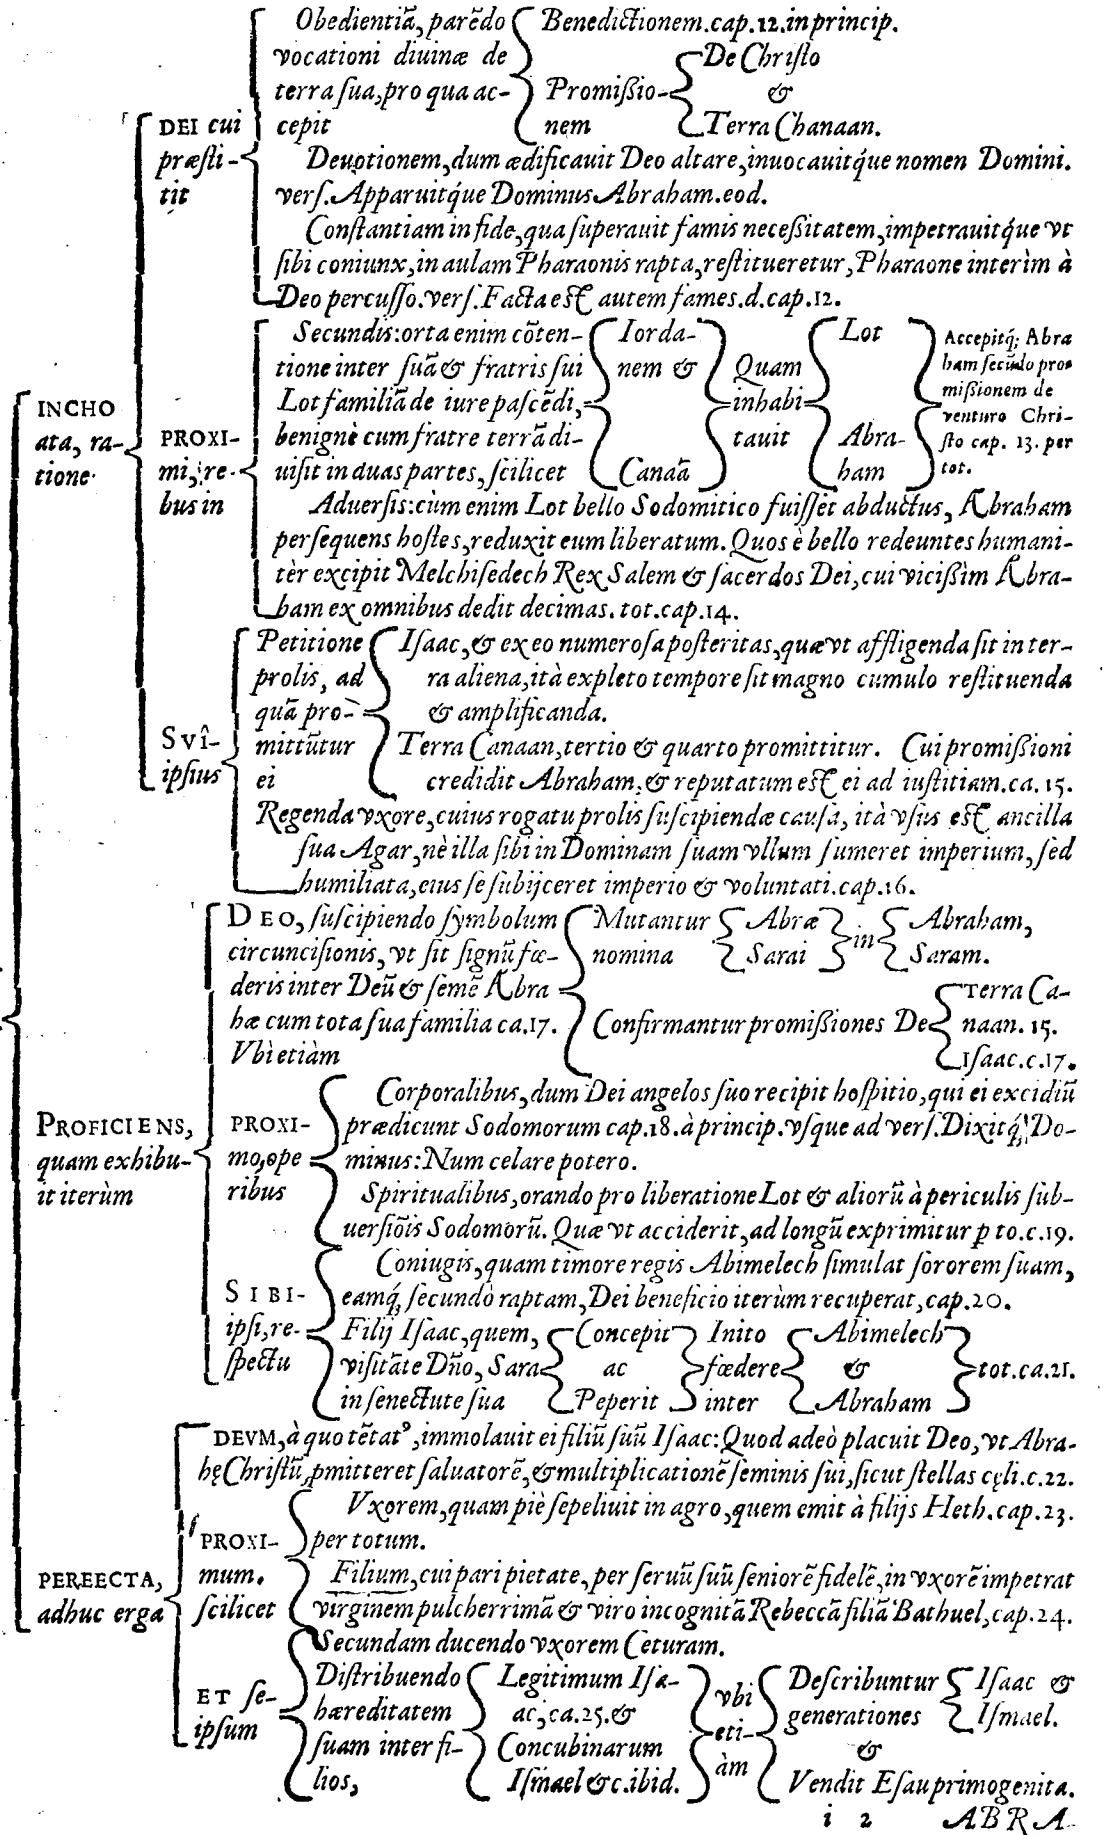 Obedientiã, parẽdo
vocationi diuinæ de
terra sua, pro qua ac-
cepit
Benedictionem. cap. 12. in princip.
Promißio-
nem
De Christo
&
Terra Chanaan.
DEI cui
præsti-
tit
Deuotionem, dum ædificauit Deo altare, inuocauitq́ue nomen Domini.
vers. Apparuitq́ue Dominus Abraham. eod.
Constantiam in fide, qua superauit famis neceßitatem, impetrauitq́ue vt
sibi coniunx, in aulam Pharaonis rapta, restitueretur, Pharaone interìm à
Deo percusso. vers. Facta est autem fames. d. cap. 12.
INCHO
ata, ra-
tione
PROXI-
mi, re-
bus in
Secundis: orta enim cõten-
tione inter suã & fratris sui
Lot familiã de iure pascẽdi,
benignè cum fratre terrã di-
uisit in duas partes, scilicet
Iorda-
nem &
Canaã
Quam
inhabi-
tauit
Lot
Abra-
ham
Accepitq́; Abra
ham secũdo pro-
mißionem de
venturo Chri-
sto cap. 13. per
tot.
Aduersis: cùm enim Lot bello Sodomitico fuisset abductus, Abraham
persequens hostes, reduxit eum liberatum. Quos è bello redeuntes humani-
tèr excipit Melchisedech Rex Salem & sacerdos Dei, cui vicißim Abra-
ham ex omnibus dedit decimas. tot. cap. 14.
Svî-
ipsius
Petitione
prolis, ad
quã pro-
mittũtur
ei
Isaac, & ex eo numerosa posteritas, quæ vt affligenda sit in ter-
ra aliena, ità expleto tempore sit magno cumulo restituenda
& amplificanda.
Terra Canaan, tertio & quarto promittitur. Cui promißioni
credidit Abraham, & reputatum est ei ad iustitiam. ca. 15.
Regenda vxore, cuius rogatu prolis suscipiendæ causa, ità vsus est ancilla
sua Agar, nè illa sibi in Dominam suam vllum sumeret imperium, sed
humiliata, eius se subijceret imperio & voluntati. cap. 16.
PROFICIENS,
quam exhibu-
it iterùm
DEO, suscipiendo symbolum
circuncisionis, vt sit signũ fœ-
deris inter Deũ & semẽ Abra
hæ cum tota sua familia ca. 17.
Vbi etiàm
Mutantur
nomina
Abræ
Sarai
in
Abraham,
Saram.
Confirmantur promißiones De
Terra Ca-
naan. 15.
Isaac. c. 17.
PROXI-
mo, ope
ribus
Corporalibus, dum Dei angelos suo recipit hospitio, qui ei excidiũ
prædicunt Sodomorum cap. 18. à princip. vsque ad vers. Dixitq́; Do-
minus: Num celare potero.
Spiritualibus, orando pro liberatione Lot & aliorũ à periculis sub-
uersiõis Sodomorũ. Quæ vt acciderit, ad longũ exprimitur p to. c. 19.
SIBI-
ipsi, re-
spectu
Coniugis, quam timore regis Abimelech simulat sororem suam,
eamq́; secundò raptam, Dei beneficio iterùm recuperat, cap. 20.
Filij Isaac, quem,
visitãte Dño, Sara
in senectute sua
Concepit
ac
Peperit
Inito
fœdere
inter
Abimelech
&
Abraham
tot. ca. 21.
PEREECTA,
adhuc erga
DEVM, à quo tẽtatꝰ, immolauit ei filiũ suũ Isaac: Quod adeò placuit Deo, vt Abra-
hę Christũ, pmitteret saluatorẽ, & multiplicationẽ seminis sui, sicut stellas cęli. c. 22.
PROXI-
mum.
scilicet
Vxorem, quam piè sepeliuit in agro, quem emit à filijs Heth. cap. 23.
per totum.
Filium, cui pari pietate, per seruũ suũ seniorẽ fidelẽ, in vxorẽ impetrat
virginem pulcherrimã & viro incognitã Rebeccã filiã Bathuel, cap. 24.
ET se-
ipsum
Secundam ducendo vxorem Ceturam.
Distribuendo
hæreditatem
suam inter fi-
lios,
Legitimum Isa-
ac, ca. 25. &
Concubinarum
Ismael & c. ibid.
vbi
eti-
àm
Describuntur
generationes
Isaac &
Ismael.
&
Vendit Esau primogenita.
i 2 ABRA-